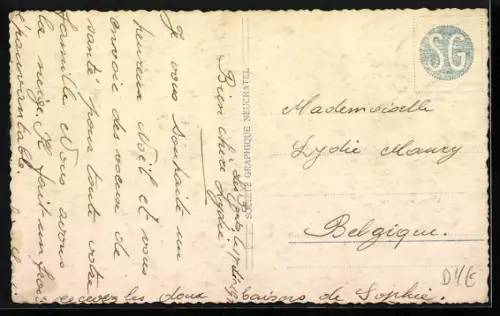 Bien chère Lydie
Je vous souhaite un
heureux Noël et vous
envoie des voeux de
santé pour toute votre
famille. Nous avons
la neige. Il fait un froid
épouvantable.
recevez les doux baisers de Sophie.
SOCIÉTÉ GRAPHIQUE NEUCHATEL
SG
Mademoiselle
Lydie Maury
Belgique.
D4E